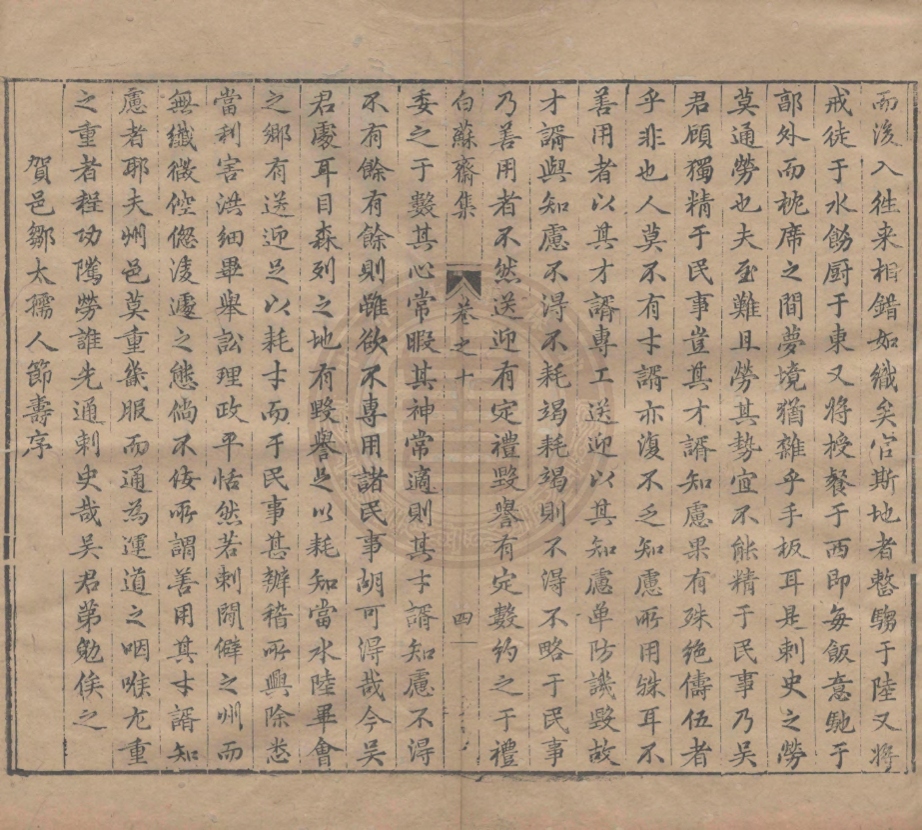 而後入徃来相錯如織矣官斯地者整騶于陸又將
戒徒于水飭厨于東又將授餐于西即每飯意馳于
郭外而枕席之間夢境猶雜乎手板耳是刺史之勞
莫通勞也夫至難且勞其勢宜不能精于民事乃吳
君顧獨精于民事豈其才諝知慮果有殊絶儔伍者
乎非也人莫不有才諝亦復不乏知慮所用殊耳不
善用者以其才諝專工送迎以其知慮单防譏毀故
才諝與知慮不得不耗竭耗竭則不得不略于民事
乃善用者不然送迎有定禮毀譽有定數約之于禮
白蘇齋集 卷之十 四
委之于數其心常暇其神常適則其才諝知慮不得
不有餘有餘則雖欲不專用諸民事胡可得哉今吳
君處耳目森列之地有毀譽足以耗知當水陸畢會
之鄉有送迎足以耗才而于民事甚辦稽所興除悉
當利害洪細畢舉訟理政平恬然若刺閒僻之州而
無纖微倥偬淩遽之態倘不佞所謂善用其才諝知
慮者耶夫州邑莫重畿服而通為運道之咽喉尤重
之重者程功隲勞誰先通刺史哉吳君第勉俟之
賀邑鄒太孺人節壽序